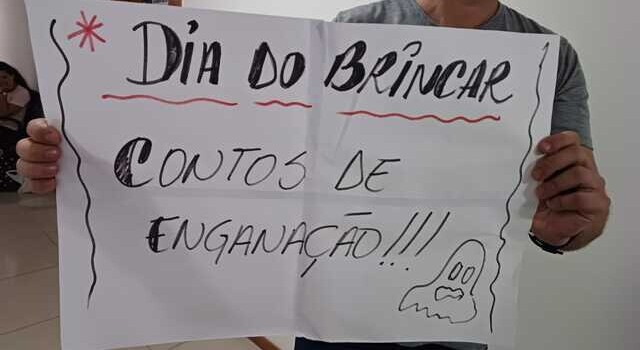 * DIA DO BRINCAR
CONTOS DE
ENGANAÇÃO!!!